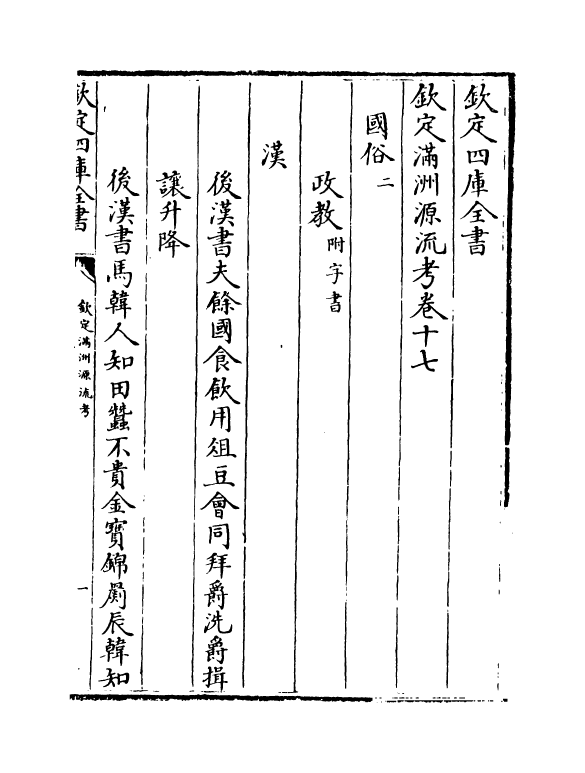 欽定四庫全書
欽定滿洲源流考卷十七
國俗二
政教附字書
漢
後漢書夫餘國食飲用俎豆會同拜爵洗爵揖
讓升降
後漢書馬韓人知田蠶不貴金寶錦罽辰韓知
欽定四庫全書
欽定滿洲源流考
一